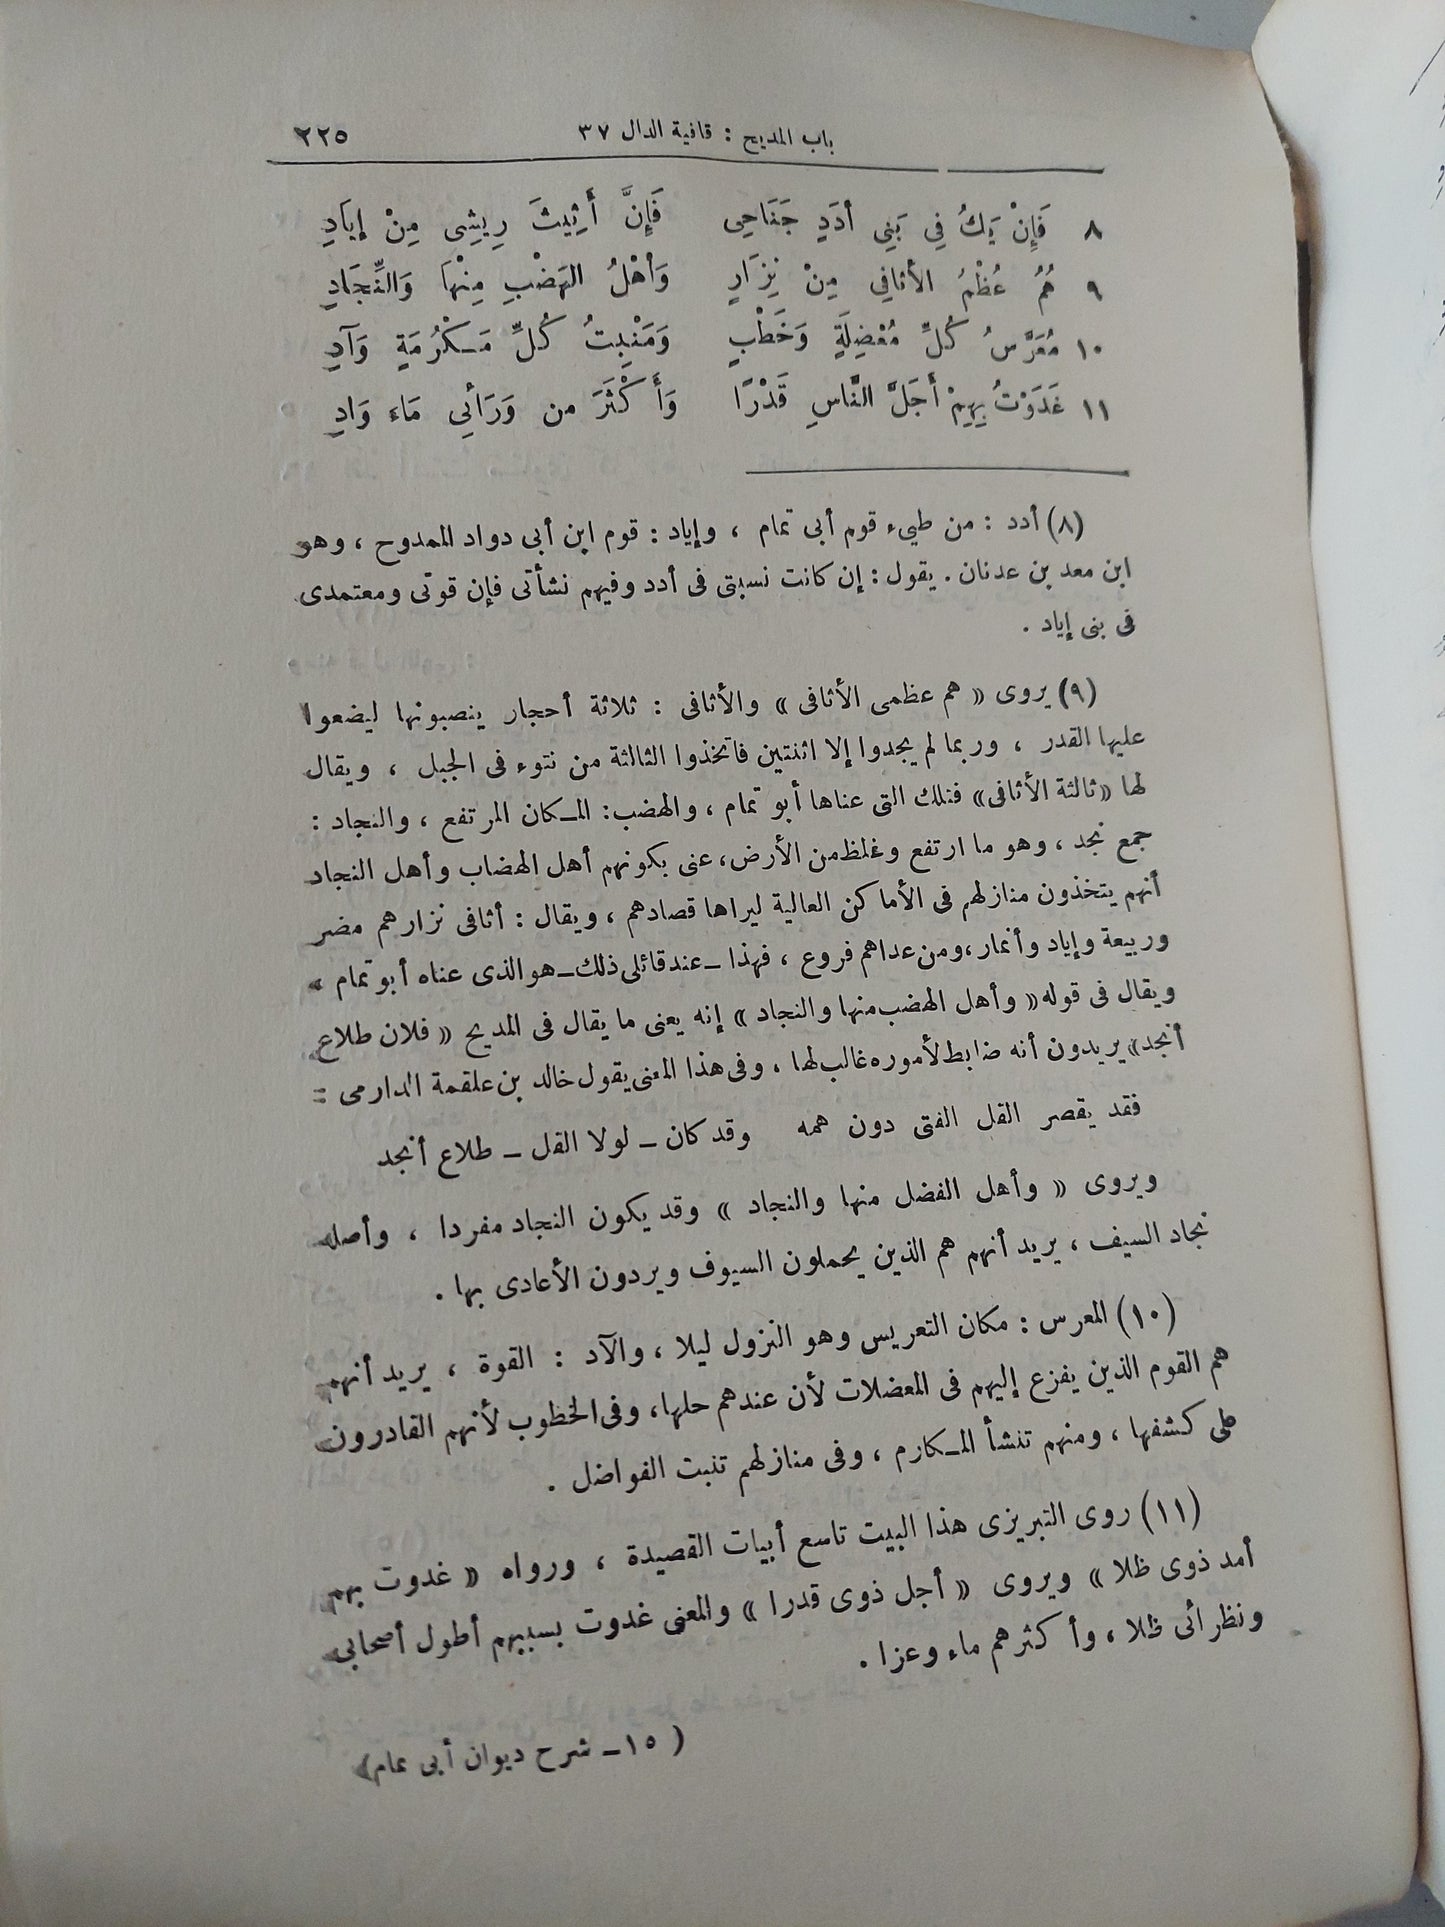 باب المديح : قافية الدال ٣٧ ٢٢٥
٨ فَإِنْ يَكُ فِي بَنِي أدَدٍ جَنَاحِى فَإِنَّ أَثِيثَ رِيشِى مِنْ إيَادِ
٩ هُمُ عُظْمُ الأثافِي مِنْ نِزَارٍ وَأهْلُ الهَضْبِ مِنْهَا وَالنِّجَادِ
١٠ مُعَرَّسُ كُلِّ مُعْضِلَةٍ وَخَطْبٍ وَمَنْبِتُ كُلِّ مَكْرُمَةٍ وَآدِ
١١ غَدَوْتُ بِهِمْ أَجَلَّ النَّاسِ قَدْرًا وَأَكْثَرَ من وَرَائِي مَاء وَادِ
(٨) أدد : من طيىء قوم أبى تمام ، وإياد : قوم ابن أبى دواد الممدوح ، وهو
ابن معد بن عدنان . يقول : إن كانت نسبتى فى أدد وفيهم نشأتى فإن قوتى ومعتمدى
فى بنى إياد .
(٩) يروى « هم عظمى الأثافى » والأثافى : ثلاثة أحجار ينصبونها ليضعوا
عليها القدر ، وربما لم يجدوا إلا اثنتين فاتخذوا الثالثة من نتوء فى الجبل ، ويقال
لها «ثالثة الأثافى» فتلك التى عناها أبو تمام ، والهضب: المكان المرتفع ، والنجاد :
جمع نجد ، وهو ما ارتفع وغلظ من الأرض، عنى بكونهم أهل الهضاب وأهل النجاد
أنهم يتخذون منازلهم فى الأماكن العالية ليراها قصادهم ، ويقال : أثافى نزار هم مضر
وربيعة وإياد وأنمار، ومن عداهم فروع ، فهذا ـ عند قائلى ذلك ـ هو الذى عناه أبو تمام ،
ويقال فى قوله « وأهل الهضب منها والنجاد » إنه يعنى ما يقال فى المديح « فلان طلاع
أنجد» يريدون أنه ضابط لأموره غالب لها ، وفى هذا المعنى يقول خالد بن علقمة الدارمى :
فقد يقصر القل الفتى دون همه وقد كان ـ لولا القل ـ طلاع أنجد
ويروى « وأهل الفضل منها والنجاد » وقد يكون النجاد مفردا ، وأصله
نجاد السيف ، يريد أنهم هم الذين يحملون السيوف ويردون الأعادى بها .
(١٠) المعرس : مكان التعريس وهو النزول ليلا ، والآد : القوة ، يريد أنهم
هم القوم الذين يفزع إليهم فى المعضلات لأن عندهم حلها، وفى الخطوب لأنهم القادرون
على كشفها ، ومنهم تنشأ المكارم ، وفى منازلهم تنبت الفواضل .
(١١) روى التبريزى هذا البيت تاسع أبيات القصيدة ، ورواه « غدوت بهم
أمد ذوى ظلا » ويروى « أجل ذوى قدرا » والمعنى غدوت بسببهم أطول أصحابى
ونظرائى ظلا ، وأكثرهم ماء وعزا .
( ١٥ ـ شرح ديوان أبى تمام)